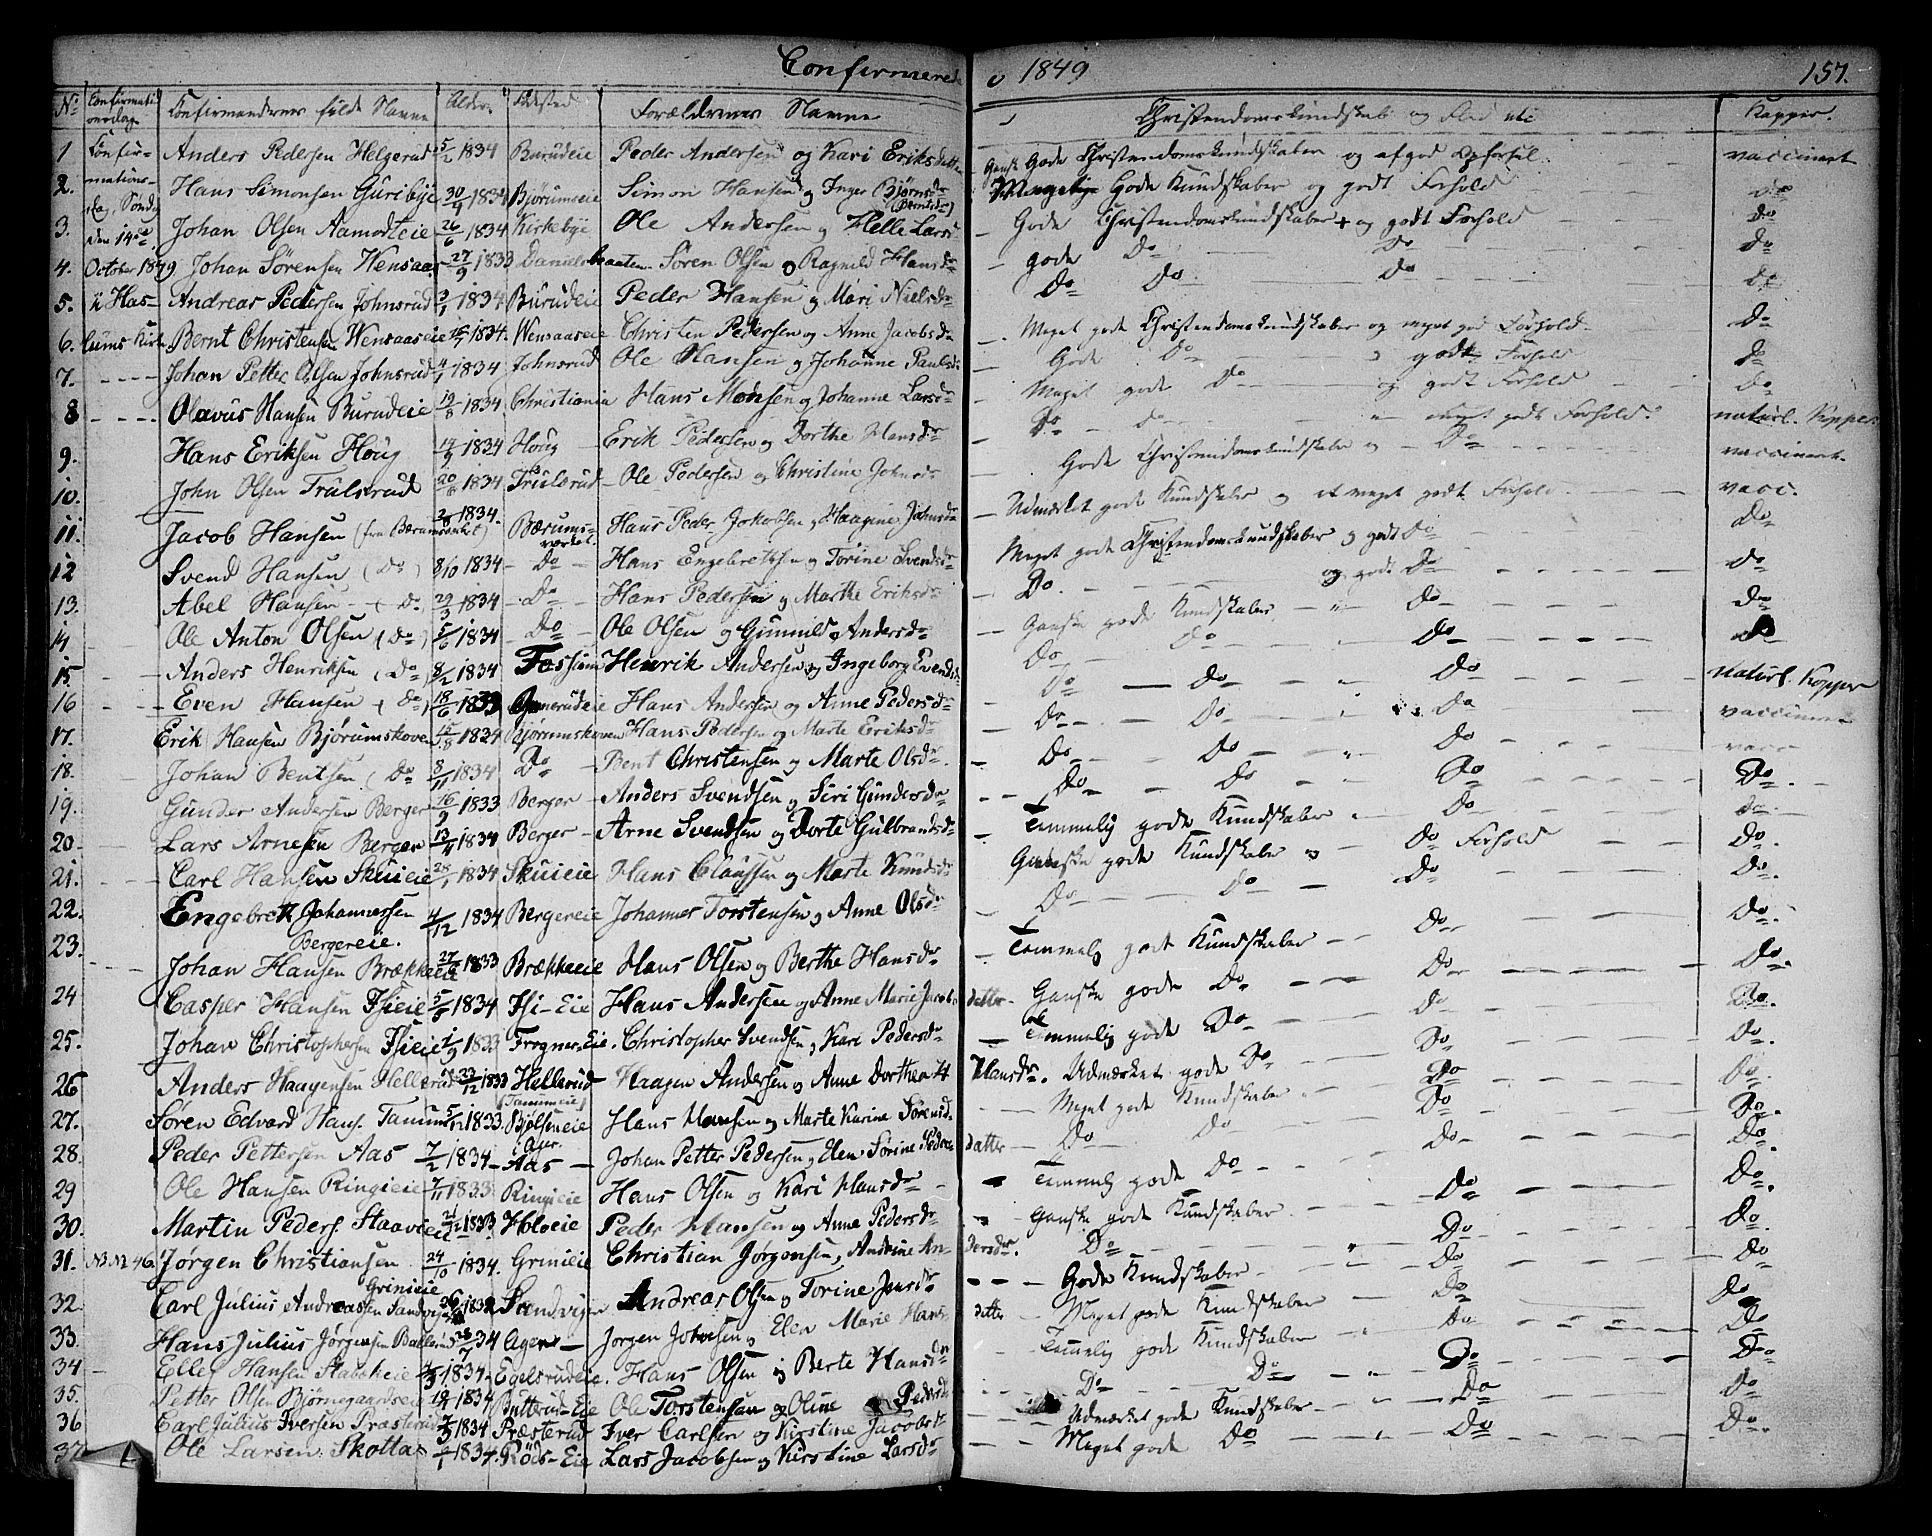 Confirmerede 1849 157.
No Confirmationsdag Confirmandernes fulde Navne Alder Fødested Forældrenes Navne Christendomskundskab og Flid Kopper.
1 Confir- Anders Pedersen Helgerud 5/2 1834 Burudeie Peder Andersen og Kari Eriksdatter Gansk Gode Christendomskundskaber og vaccineret
2. mations- Hans Simonsen Guribye 30/9 1834 Bjørumseie Simon Hansen og Inger Bjørnsdr Gode Kundskaber og godt Forhold Do
3. dag, Søndag den 14de Johan Olsen Aamodteie 26/6 1834 Kirkebye Ole Andersen og Helle Larsdr Gode Christendomskundskaber og godt Forhold Do
4. October 1849 Johan Sørensen Wensaas 27/9 1833 Danielsbraaten Søren Olsen og Ragnild Hansdr gode Do Do Do
5. i Has- Andreas Pedersen Johnsrud 3/1 1834 Burudeie Peder Hansen og Mari Nielsdr Do Do Do Do
6. lums Kirke Bernt Christensen Wensaaseie 1834. Wensaaseie Christen Pedersen og Anne Jacobsdr Meget gode Christendomskundskaber og meget god Forhold Do
7. Johan Petter Olsen Johnsrud 1834 Johnsrud Ole Hansen og Johanne Paulsdr Gode Do godt Forhold Do
8 Olavus Hansen Burudeie 19/8 1834 Christiania Hans Monsen og Johanne Larsdr Meget gode Do og godt Forhold Do
9. Hans Eriksen Houg 14/9 1834 Houg Erik Pedersen og Dorthe Hansdr Do Do meget godt Forhold. naturl. Kopper
10. John Olsen Trulsrud 1834 Trulsrud Ole Pedersen og Christine Johnsdr Gode Christendomskundskaber og Do vaccineret.
11. Jacob Hansen (fra Bærumsverket) 1834. Bærums-værket. Hans Peder Jakobsen og Haagine Johnsdr Udmærket gode Kundskaber og et meget godt Forhold vacc.
12 Svend Hansen (Do) 8/10 1834 Do Hans Engebrethsen og Torine Svendsdr Meget gode Christendomskundskaber og godt Do Do
13. Abel Hansen (Do) 29/3 1834 Do Hans Pedersen og Marthe Eriksdr Do. og godt Do Do
14 Ole Anton Olsen (Do) 5/6 1834 Do Ole Olsen og Gunnild Andersdr Ganske gode Kundskaber Do Do
15 Anders Henriksen (Do) 8/2 1834 Fossum Henrik Andersen og Ingeborg Evendsdr Do Do Do Do
16 Even Hansen (Do) 18/6 1833 Hans Andersen og Anne Pedersdr Do Do Do naturl. Kopper
17. Erik Hansen Bjørumskoven 15/8 1834 Bjørumskoven Hans Pedersen og Marte Eriksdr Do Do Do vaccineret
18. Johan Bentsen (Do 8/11 1834 Do Bent Christensen og Marte Olsdr. Do Do Do vacc
19. Gunder Andersen Berger 16/9 1833 Berger Anders Svendsen og Siri Gundersdr Do Do Do Do.
20 Lars Arnesen Berger 13/4 1834 Berger Arne Svendsen og Dorte Gulbrandsdr Temmelig gode Kundskaber Do Do
21. Carl Hansen Skuieie 28/1 1834 Skuieie Hans Claussen og Marte Knudsdr Ganske gode Kundskaber og Do Forhold Do.
22. Engebreth Johannessen Bergereie. 4/12 1834 Bergereie Johannes Torstensen og Anne Olsdr Do Do Do Do.
23. Johan Hansen Brækkeeie 27/6 1833 Brækkeeie Hans Olsen og Berthe Hansdr Temmelig godt Kundskaber Do Do.
24 Casper Hansen Fsieie 5/6 1834 Fsi-Eie Hans Andersen og Anne Marie Jacobsdatter Ganske gode Do Do Do.
25. Johan Christophersen Fsieie 1/9 1833 Frogner-Eie. Christopher Svendsen og Kari Pedersdr Temmelig gode Do Do Do.
26 Anders Haagensen Hellerud 23/12 1833 Hellerud Haagen Andersen og Anne Dorthea Hansdr. Udmærket gode Do Do Do.
27. Søren Edvard Hans. Tanum 5/12 1833. (Tanumeie) Bjølseneie Agur. Hans Hansen og Marte Karine Sørensdatter Meget gode Kundskaber Do Do.
28. Peder Pettersen Aas 7/2 1834 Aas Johan Petter Pedersen og Elen Sørine Pedersdatter Do Do Do Do.
29 Ole Hansen Ringieie 7/11 1833 Ringieie Hans Olsen og Kari Hansdr Temmelig gode Do Do Do
30. Martin Peders. Staaveie 21/12 1833 Holoeie Peder Hansen og Anne Pedersdr Ganske gode Kundskaber Do Do.
31. NB No 46. Jørgen Christiansen Grinieie 24/10 1834. Grinieie Christian Jørgensen, Andrine Andersdr. Do Do Do
32. Carl Julius Andreasen Sandvigen 26 1834 Sandvigen Andreas Olsen og Torine Jensdr Gode Kundskaber Do Do
33. Hans Julius Jørgensen Ballerud 28/7 34 Ager Jørgen Johnsen og Elen Marie Hansdatter Meget gode Kundskaber Do Do
34 Ellef Hansen Stabekeie 1834 Egelsrudeie. Hans Olsen og Berte Hansdr Temmelig gode Kundskaber Do Do
35. Petter Olsen Bjørnegaardseie 1834 Butterud-Eie Ole Torstensen og Oline Pedersdr Do Do Do Do
36 Carl Julius Iversen Præsterud 1834 Præsterud Iver Carlsen og Kirstine Jacobsdr Udmærket gode Kundskaber Do Do
37 Ole Larsen Skottas 1834. Røds-Eie Lars Jacobsen og Kirstine Larsdr Meget gode Do Do Do.